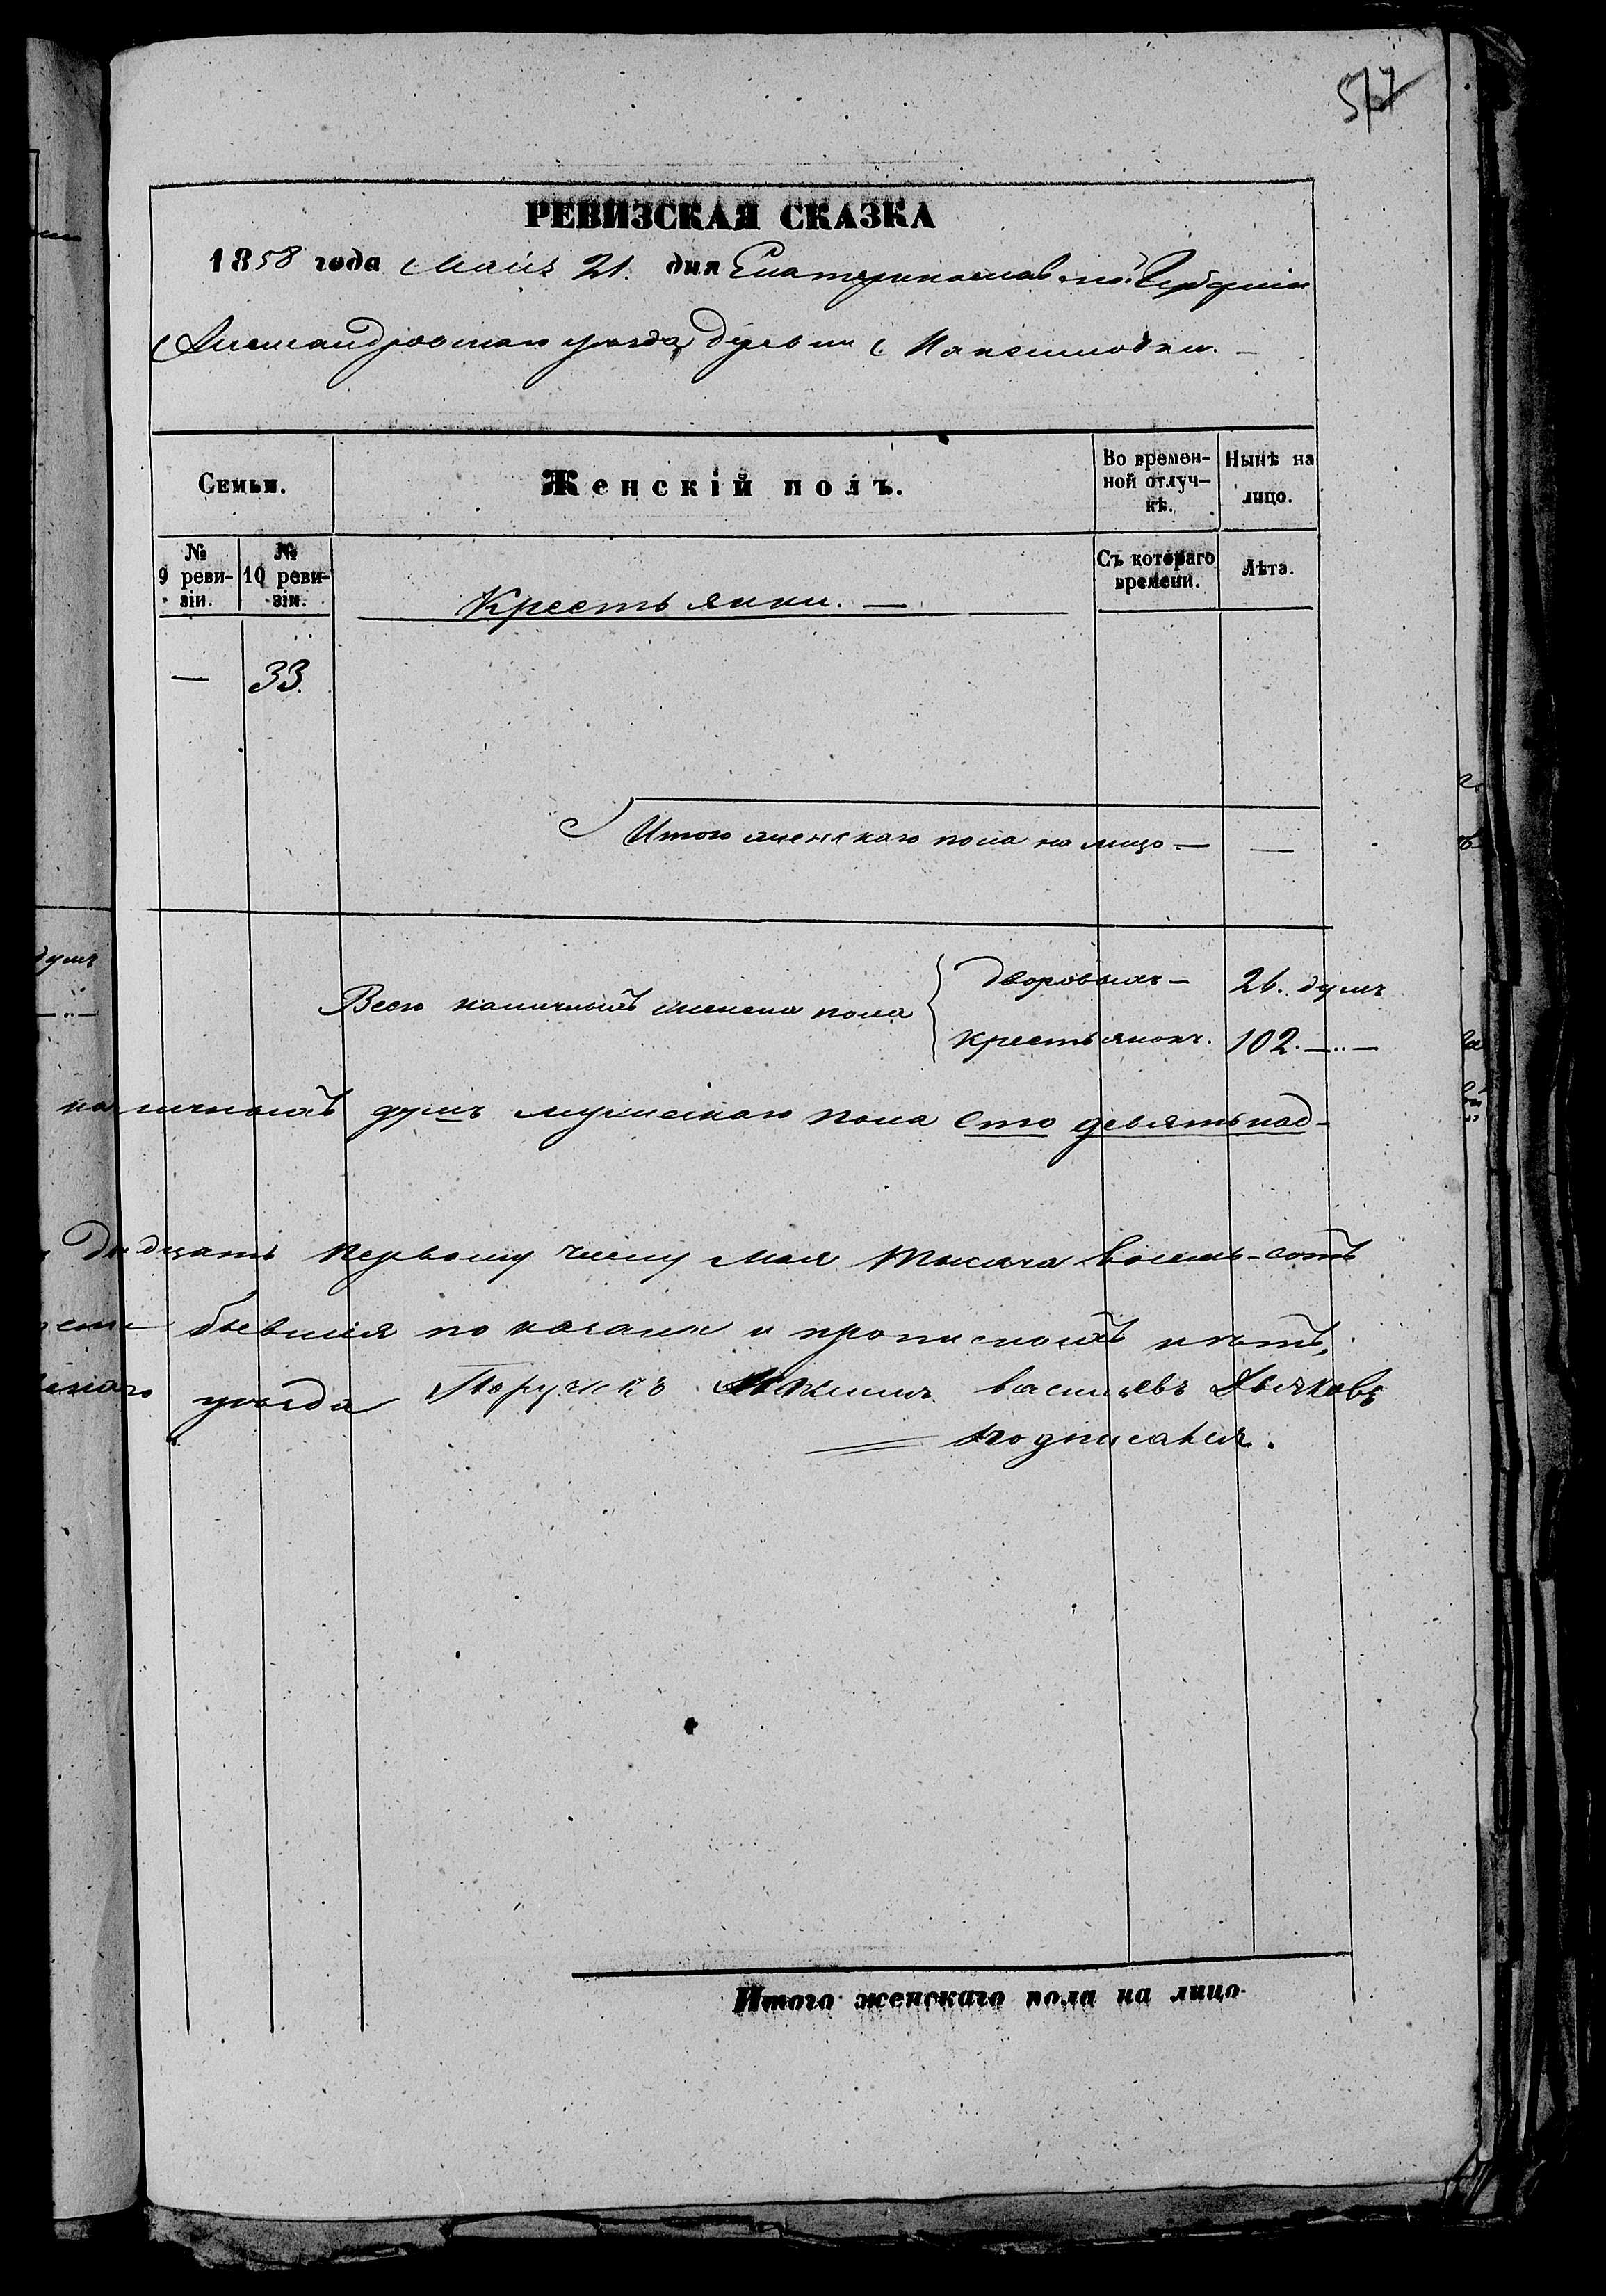 577
РЕВИЗСКАЯ СКАЗКА
1858 года Маія 21. дня Екатеринослав.ной Губерніи
Александровскаго уѣзда, деревни Максимовки. —
Семьи.
Женскій полъ.
Во времен-
ной отлуч-
кѣ.
Нынѣ на
лицо.
№
9 реви-
зіи.
№
10 реви-
зіи.
Съ котораго
времени.
Лѣта.
Крестьянки. —
— 33.
Итого женскаго пола на лицо — —
душъ
Всего наличныхъ женска пола
дворовыхъ — 26. душъ
крестьянокъ. 102. —„—
наличныхъ душъ мужескаго пола сто девятьнад-
двадцать первому числу Мая тысяча восемь-сотъ
бывшія по назани и прописныхъ нѣтъ,
уѣзда Поручикъ Акимъ васильевъ Дьячковъ
подписался.
Итого женскаго пола на лицо